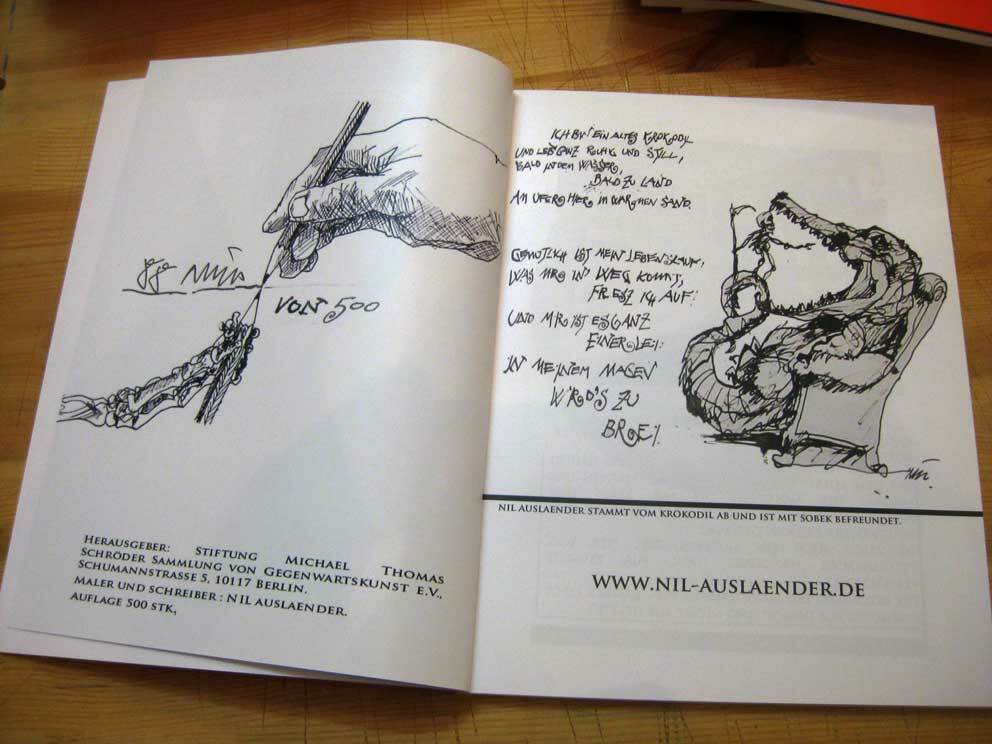 VON 500
HERAUSGEBER: STIFTUNG MICHAEL THOMAS
SCHRÖDER SAMMLUNG VON GEGENWARTSKUNST E.V.,
SCHUMANNSTRASSE 5, 10117 BERLIN.
MALER UND SCHREIBER : NIL AUSLAENDER.
AUFLAGE 500 STK,
ICH BIN EIN ALTES KROKODIL
UND LEB GANZ RUHIG UND STILL,
BALD IN DEM WASSER,
BALD ZU LAND
AM UFER HIER IM WARMEN SAND.
GEMÜTLICH IST MEIN LEBENSLAUF,
WAS MIR IN WEG KOMMT,
FRESZ ICH AUF.
UND MIR IST ES GANZ
EINERLEI:
IN MEINEM MAGEN
WIRD'S ZU
BREI.
NIL AUSLAENDER STAMMT VOM KROKODIL AB UND IST MIT SOBEK BEFREUNDET.
WWW.NIL-AUSLAENDER.DE